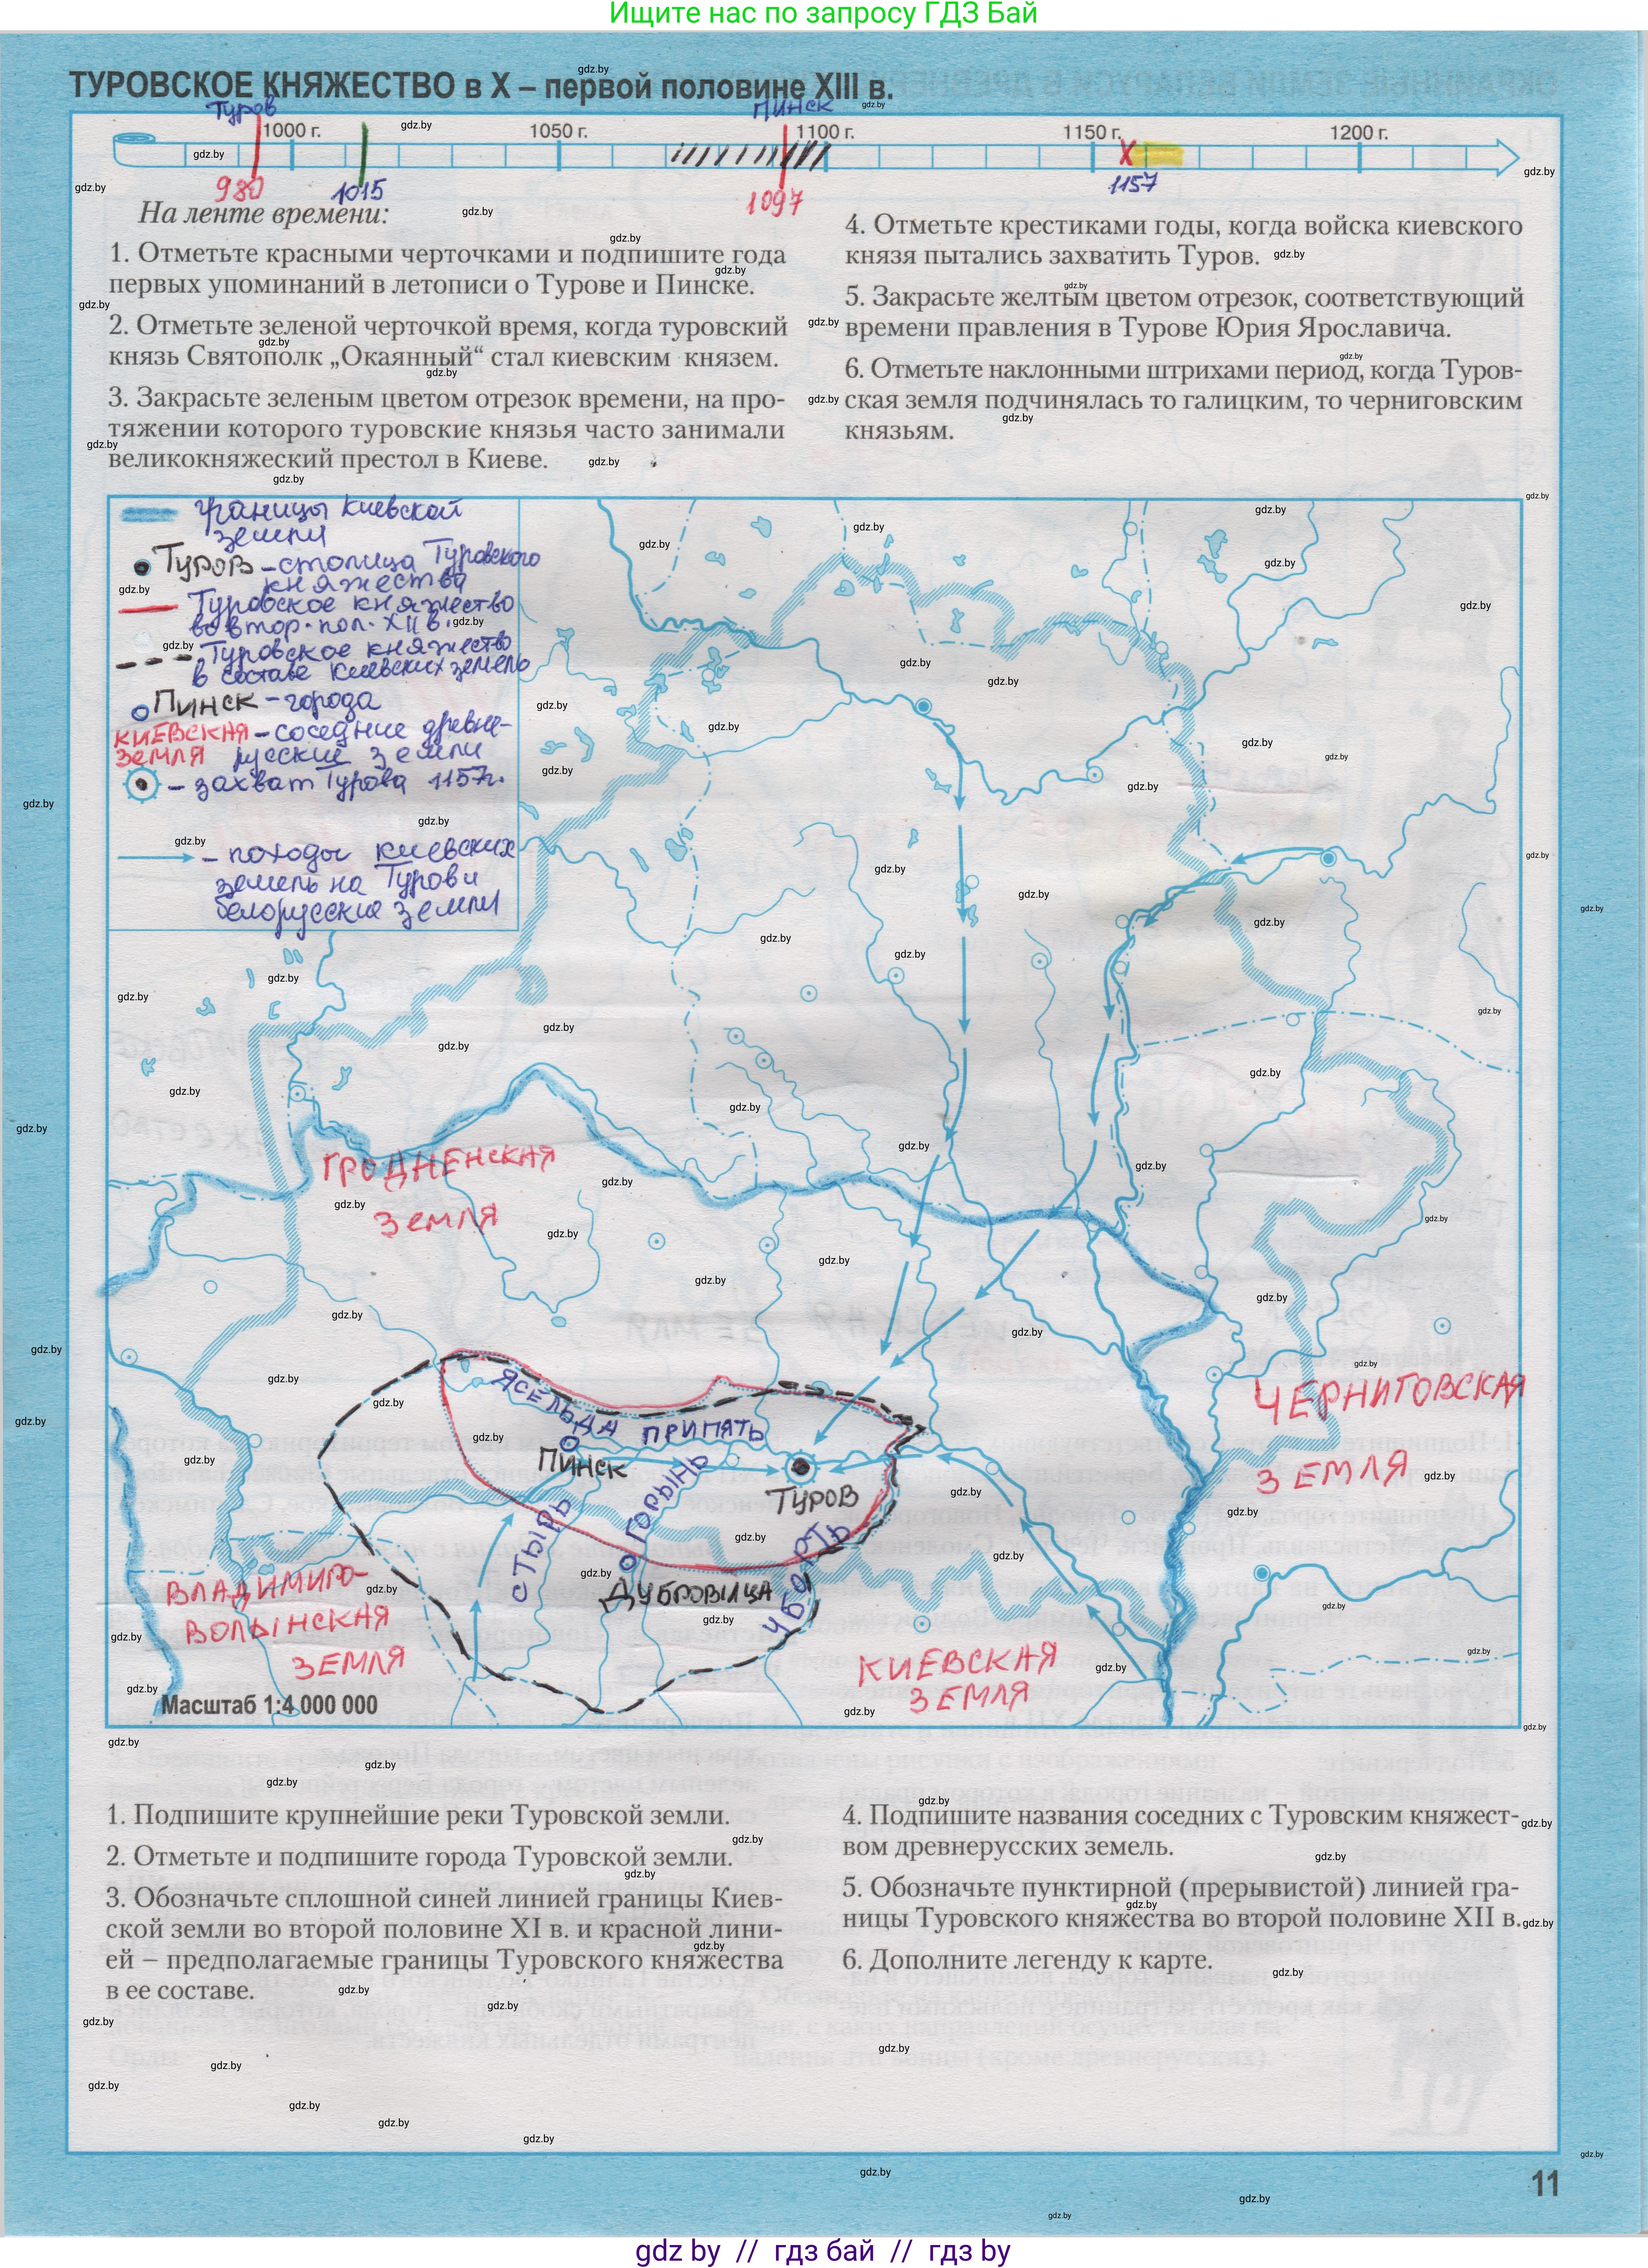 Ищите нас по запросу ГДЗ Бай
ТУРОВСКОЕ КНЯЖЕСТВО в X – первой половине XIII в.
Туров
Пинск
1000 г.
1050 г.
1100 г.
1150 г.
1200 г.
980
1015
1097
1157
На ленте времени:
1. Отметьте красными черточками и подпишите года
первых упоминаний в летописи о Турове и Пинске.
2. Отметьте зеленой черточкой время, когда туровский
князь Святополк „Окаянный“ стал киевским князем.
3. Закрасьте зеленым цветом отрезок времени, на про-
тяжении которого туровские князья часто занимали
великокняжеский престол в Киеве.
4. Отметьте крестиками годы, когда войска киевского
князя пытались захватить Туров.
5. Закрасьте желтым цветом отрезок, соответствующий
времени правления в Турове Юрия Ярославича.
6. Отметьте наклонными штрихами период, когда Туров-
ская земля подчинялась то галицким, то черниговским
князьям.
границы Киевской
земли
Туров – столица Туровского
княжества
Туровское княжество
во втор. пол. XII в.
Туровское княжество
в составе Киевских земель
Пинск – города
КИЕВСКАЯ – соседние древне-
ЗЕМЛЯ русские земли
– захват Турова 1157г.
– походы киевских
земель на Туров и
белорусские земли
ГРОДНЕНСКАЯ
ЗЕМЛЯ
ЯСЕЛЬДА
ПРИПЯТЬ
ПИНСК
ГОРЫНЬ
ТУРОВ
СТЫРЬ
УБОРТЬ
ДУБРОВИЦА
ЧЕРНИГОВСКАЯ
ЗЕМЛЯ
ВЛАДИМИРО-
ВОЛЫНСКАЯ
ЗЕМЛЯ
КИЕВСКАЯ
ЗЕМЛЯ
Масштаб 1:4 000 000
1. Подпишите крупнейшие реки Туровской земли.
2. Отметьте и подпишите города Туровской земли.
3. Обозначьте сплошной синей линией границы Киев-
ской земли во второй половине XI в. и красной лини-
ей – предполагаемые границы Туровского княжества
в ее составе.
4. Подпишите названия соседних с Туровским княжест-
вом древнерусских земель.
5. Обозначьте пунктирной (прерывистой) линией гра-
ницы Туровского княжества во второй половине XII в.
6. Дополните легенду к карте.
11
gdz by // гдз бай // гдз by